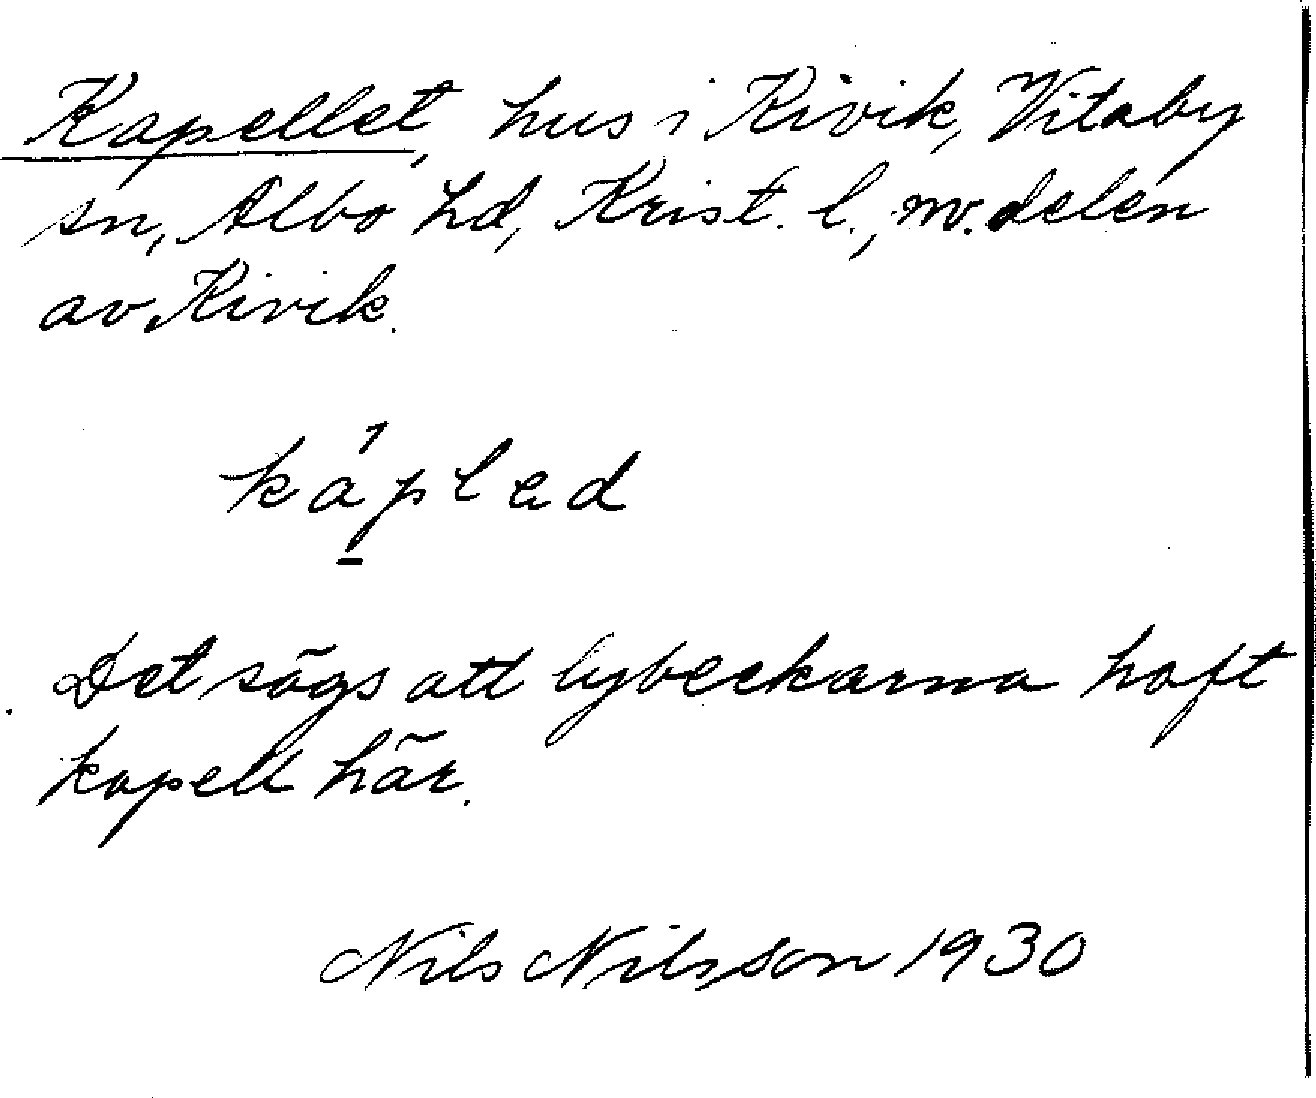 Kapellet, hus i Kivik, Vitaby
sn, Albo hd, Krist. l., nv. delen
av Kivik.
káplad
Det sägs att lybeckarna haft
kapell här.
Nils Nilsson 1930